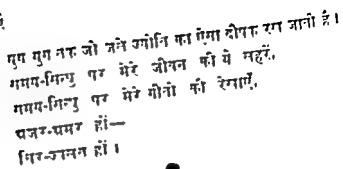 युग युग तक जो जले ज्योति का ऐसा दीपक रख जाती है।
समय-सिन्धु पर मेरे जीवन की ये लहरें,
समय-सिन्धु पर मेरे गीतों की रेखाएँ,
अजर-अमर हों—
चिर- हों।